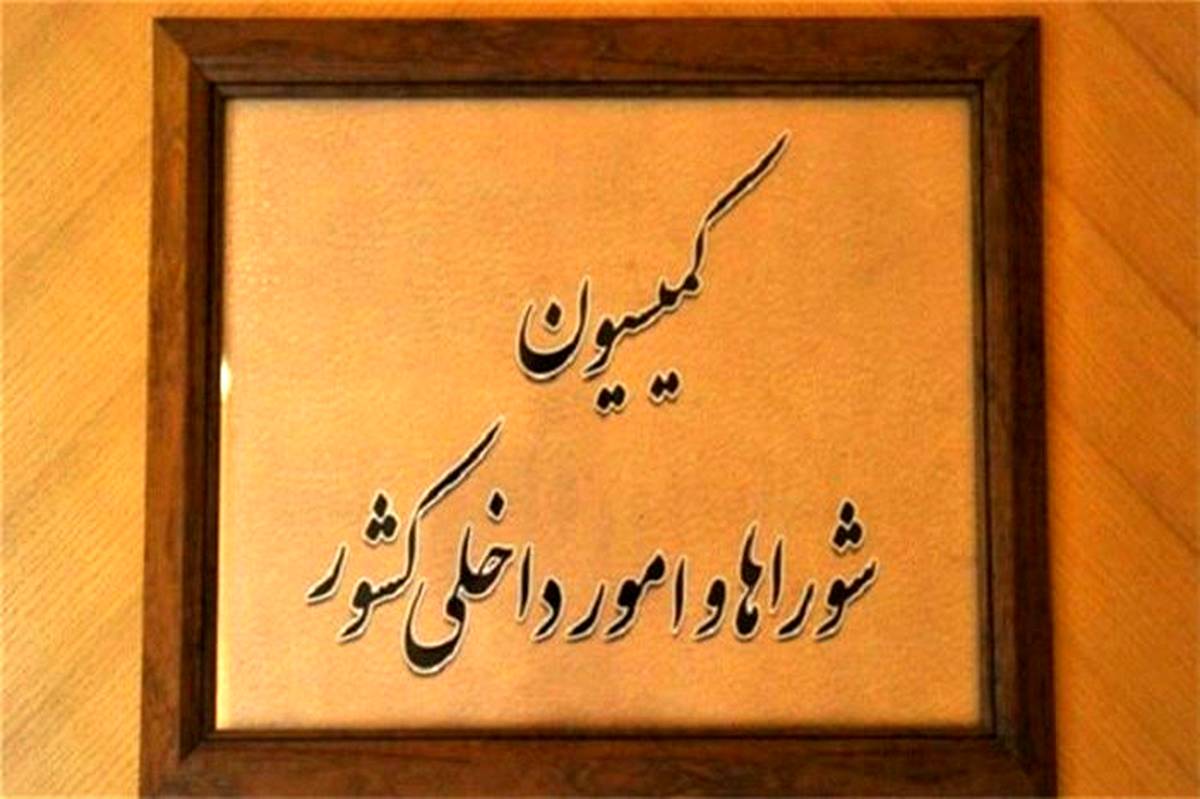 کمیسیون
شوراها و امور داخلی کشور